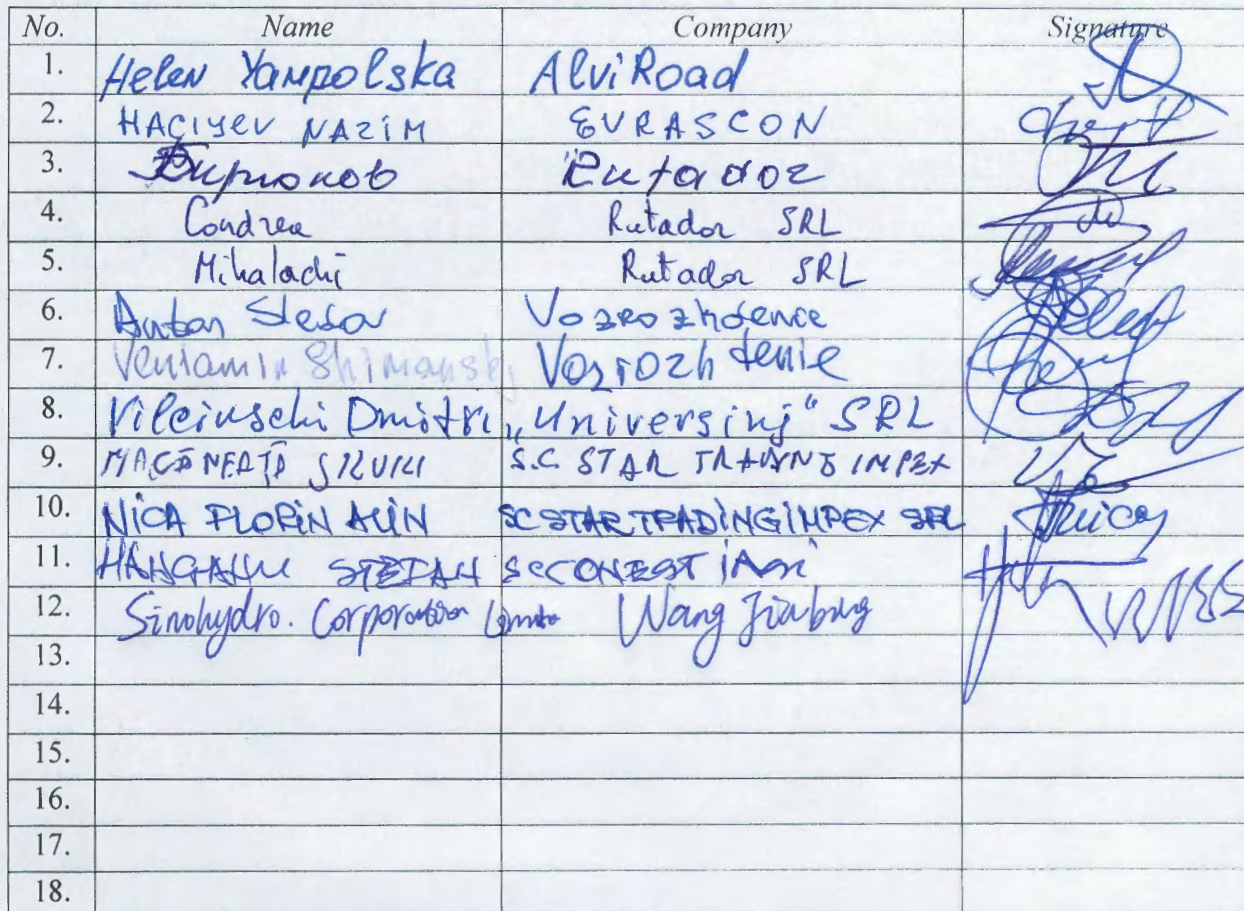 No. Name Company Signature
1. Helen Yampolska AlviRoad
2. HACIYEV NAZIM EVRASCON
3.
4. Condrea Rutador SRL
5. Mihalachi Rutador SRL
6. Anton Vozrozhdenie
7. Veniamin Shimansky Vozrozhdenie
8. Vilciuschi Dmitri „Universinj" SRL
9. S.C. STAR TRADING IMPEX
10. NICA FLORIN ALIN SC STAR TRADING IMPEX SRL
11. HANGANU STEFAN SC CONEST IASI
12. Sinohydro. Corporation Limited Wang
13.
14.
15.
16.
17.
18.